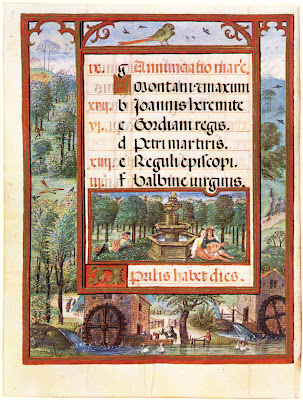 g Annunciatio marie.
A Montani maximi
xvii. b Joannis heremite
vi. c Gordiani regis.
d Petri martiris.
xiiii. e Reguli episcopi.
iii. f Balbine virginis.
Aprilis habet dies.